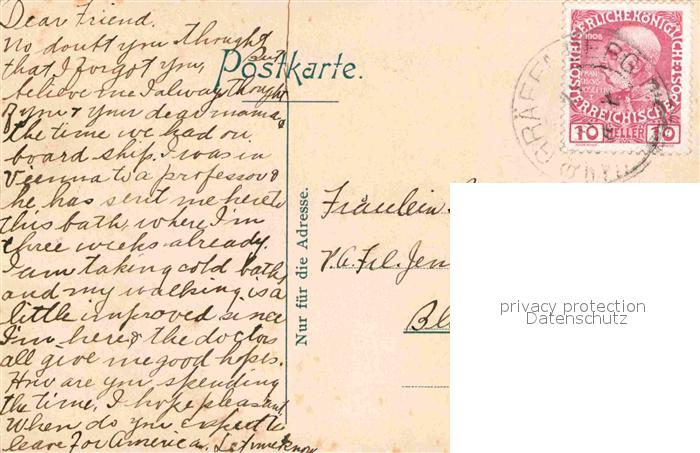 Dear Friend.
No doubt you thought
that I forgot you, but
believe me I alway thought
of you & your dear mama &
the time we had on
board ship. I was in
Vienna to a professor &
he has sent me here to
this bath, where I'm
three weeks already.
I am taking cold baths
and my walking is a
little improved since
I'm here & the doctors
all give me good hopes.
How are you spending
the time, I hope pleasant,
When do you expect to
leave For America. Let me know
Postkarte.
Nur für die Adresse.
KAISERLICHE KÖNIGLICHE
ÖSTERREICHISCHE POST
1908
10 HELLER 10
GRÄFENBERG
Fräulein
Bl
privacy protection
Datenschutz